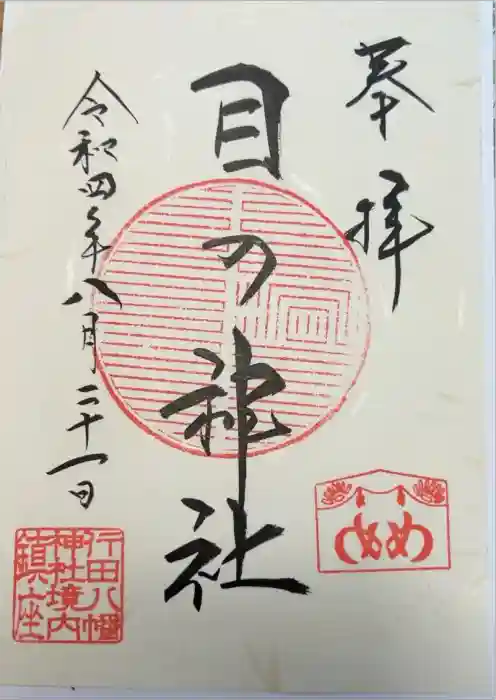 奉拝
目の神社
令和四年八月二十一日
めめ
行田八幡
神社境内
鎮座